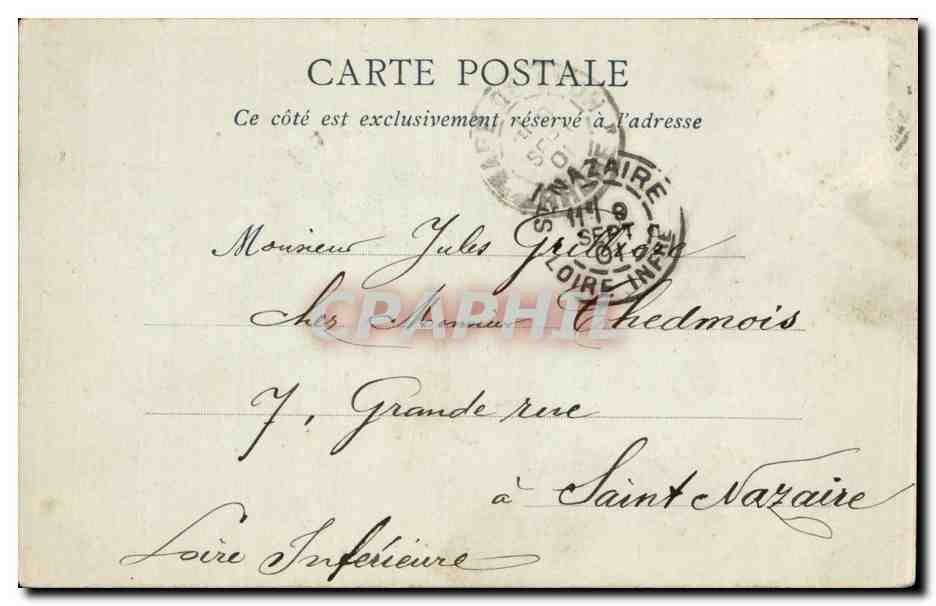 CARTE POSTALE
Ce côté est exclusivement réservé à l'adresse
ST NAZAIRE
9
SEPT
01
LOIRE INFRE
Monsieur Jules
chez Monsieur Thedmois
7, Grande rue
à Saint Nazaire
Loire Inférieure
CPAPHIL